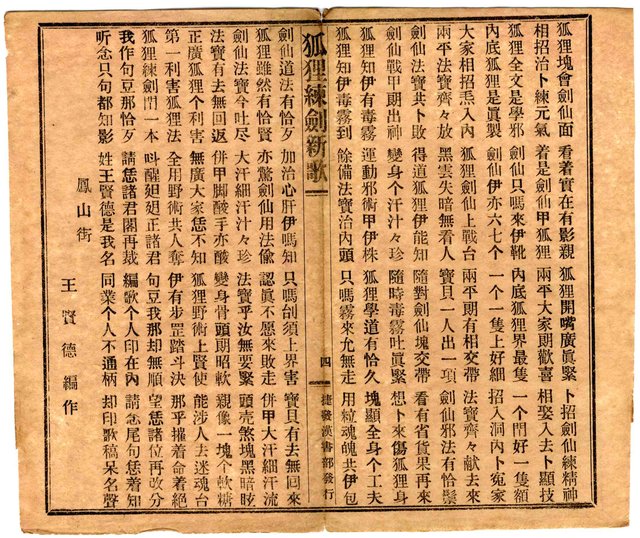 狐狸塊會劍仙面 看着實在有影親 狐狸開嘴廣眞緊 卜招劍仙練精神
相招治卜練元氣 着是劍仙甲狐狸 兩平大家朗歡喜 相娶入去卜顯技
狐狸全文是學邪 劍仙只嗎來伊靴 內底狐狸界最隻 一个閂好一隻額
內底狐狸是眞製 劍仙伊亦六七个 一个一隻上好細 招入洞內卜冤家
大家相招焄入內 狐狸劍仙上戰台 兩平朗有相交帶 法寶齊々獻去來
兩平法寶齊々放 黑雲失暗無看人 寶貝一人出一項 劍仙邪法有恰鬆
劍仙法寶共卜敗 得道狐狸伊能知 隨對劍仙塊交帶 看有省貨果再來
劍仙戰甲朗出神 變身个汗汁々珍 隨時毒霧吐眞緊 想卜來傷狐狸身
狐狸知伊有毒霧 運動邪術甲伊株 狐狸學道有恰久 塊顯全身个工夫
狐狸知伊毒霧到 餘備法寶治內頭 只嗎霧來允無走 用粒魂魄共伊包
狐狸練劍新歌 四 捷發漢書部發行
劍仙道法有恰歹 加治心肝伊嗎知 只嗎刣須上界害 寶貝有去無回來
狐狸雖然有恰賢 亦驚劍仙用法偷 認眞不愿來敗走 併甲大汗細汗流
劍仙法寶今吐尽 大汗細汗汁々珍 法寶乎汝無要緊 頭壳煞塊黑暗眩
法寶有去無回返 併甲脚酸手亦酸 變身骨頭朗昭軟 親像一塊个軟糖
正廣狐狸个利害 無廣大家恁不知 狐狸野術上賢使 能涉人去迷魂台
第一利害狐狸法 全用野術共人奪 伊有步罡踏斗決 那乎着命着絕
狐狸練劍閂一本 呌醒正諸君 句豆我那却無順 望恁諸位再改分
我作句豆那恰歹 請恁諸君閣再裁 編歌个人印在內 請念尾句恁着知
听念只句都知影 姓王賢德是我名 同業个人不通柄 却印歌稿呆名聲
鳳山街 王賢德編作